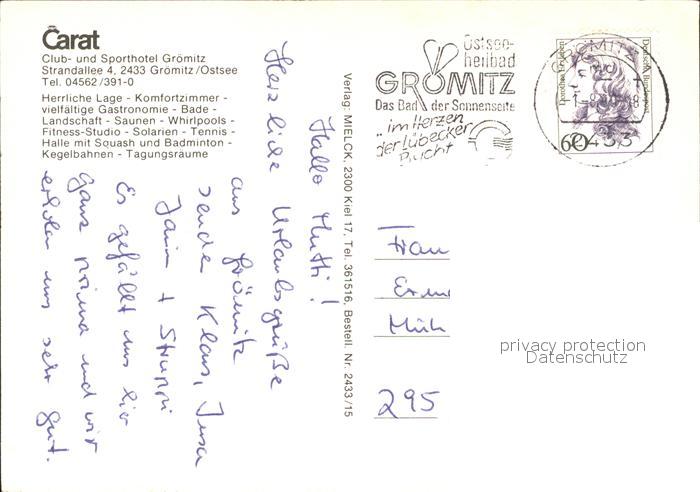 Carat
Club- und Sporthotel Grömitz
Strandallee 4, 2433 Grömitz/Ostsee
Tel. 04562/391-0
Herrliche Lage - Komfortzimmer -
vielfältige Gastronomie - Bade -
Landschaft - Saunen - Whirlpools -
Fitness-Studio - Solarien - Tennis -
Halle mit Squash und Badminton -
Kegelbahnen - Tagungsräume
Hallo Mutti!
Herzliche Urlaubsgrüße
aus Grömitz
senden Klaus,
+ Struppi
Es gefällt uns hier
ganz prima und wir
erholen uns sehr gut.
Verlag: MIELCK, 2300 Kiel 17, Tel. 361516, Bestell. Nr. 2433/15
Ostsee-
heilbad
GRÖMITZ
Das Bad der Sonnenseite
... im Herzen
der Lübecker
Bucht
GRÖMITZ
2433
Dorothea Erxleben
Deutsche Bundespost
60
Frau
295
privacy protection
Datenschutz